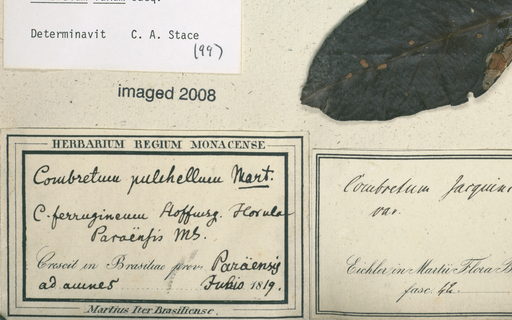 Determinavit C. A. Stace
(99)
imaged 2008
HERBARIUM REGIUM MONACENSE
Combretum pulchellum Mart.
C. ferrugineum Hoffmsg. Horula
Paraënsis MS.
Crescit in Brasiliae prov. Paraënsi
ad amnes Junio 1819.
Martius Iter Brasiliense.
Combretum Jacquini
var.
Eichler in Martii Flora B
fasc. 42.